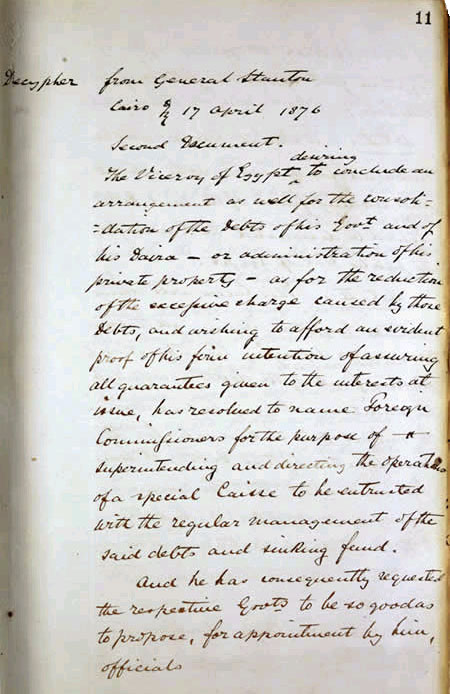 11
Decypher from General Stanton
Cairo 17 April 1876
Second Document.
desiring
The Viceroy of Egypt ^ to conclude an
arrangement as well for the consoli=
=dation of the Debts of his Govt and of
his Daira – or administration of his
private property – as for the reduction
of the excessive charge caused by those
Debts, and wishing to afford an evident
proof of his firm intention of assuring
all guarantees given to the interests at
issue, has resolved to name Foreign
Commissioners for the purpose of
superintending and directing the operations
of a special Caisse to be entrusted
with the regular management of the
said debts and sinking fund.
And he has consequently requested
the respective Govts to be so good as
to propose, for appointment by him,
officials